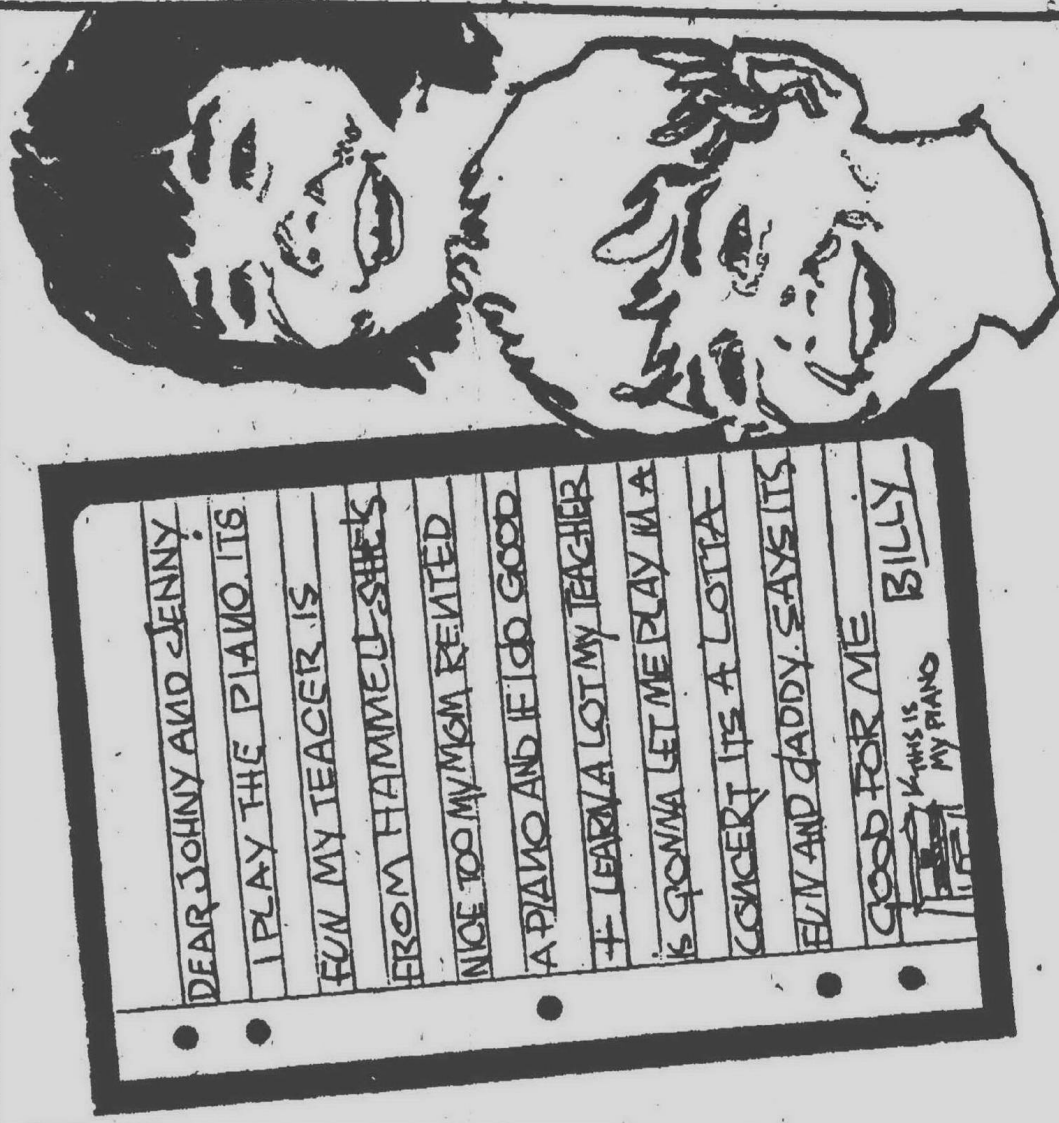 DEAR JOHNY AND JENNY
I PLAY THE PIANO. ITS
FUN MY TEACER IS
FROM HAMMELL SHE'S
NICE TOO MY MOM RENTED
A PIANO AND IF I do GOOD
+ LEARN A LOT MY TEACHER
is GONNA LET ME PLAY IN A
CONCERT ITS A LOTTA-
FUN AND dADDY. SAYS ITS
GOOD FOR ME
THIS IS
MY PIANO
BILLY